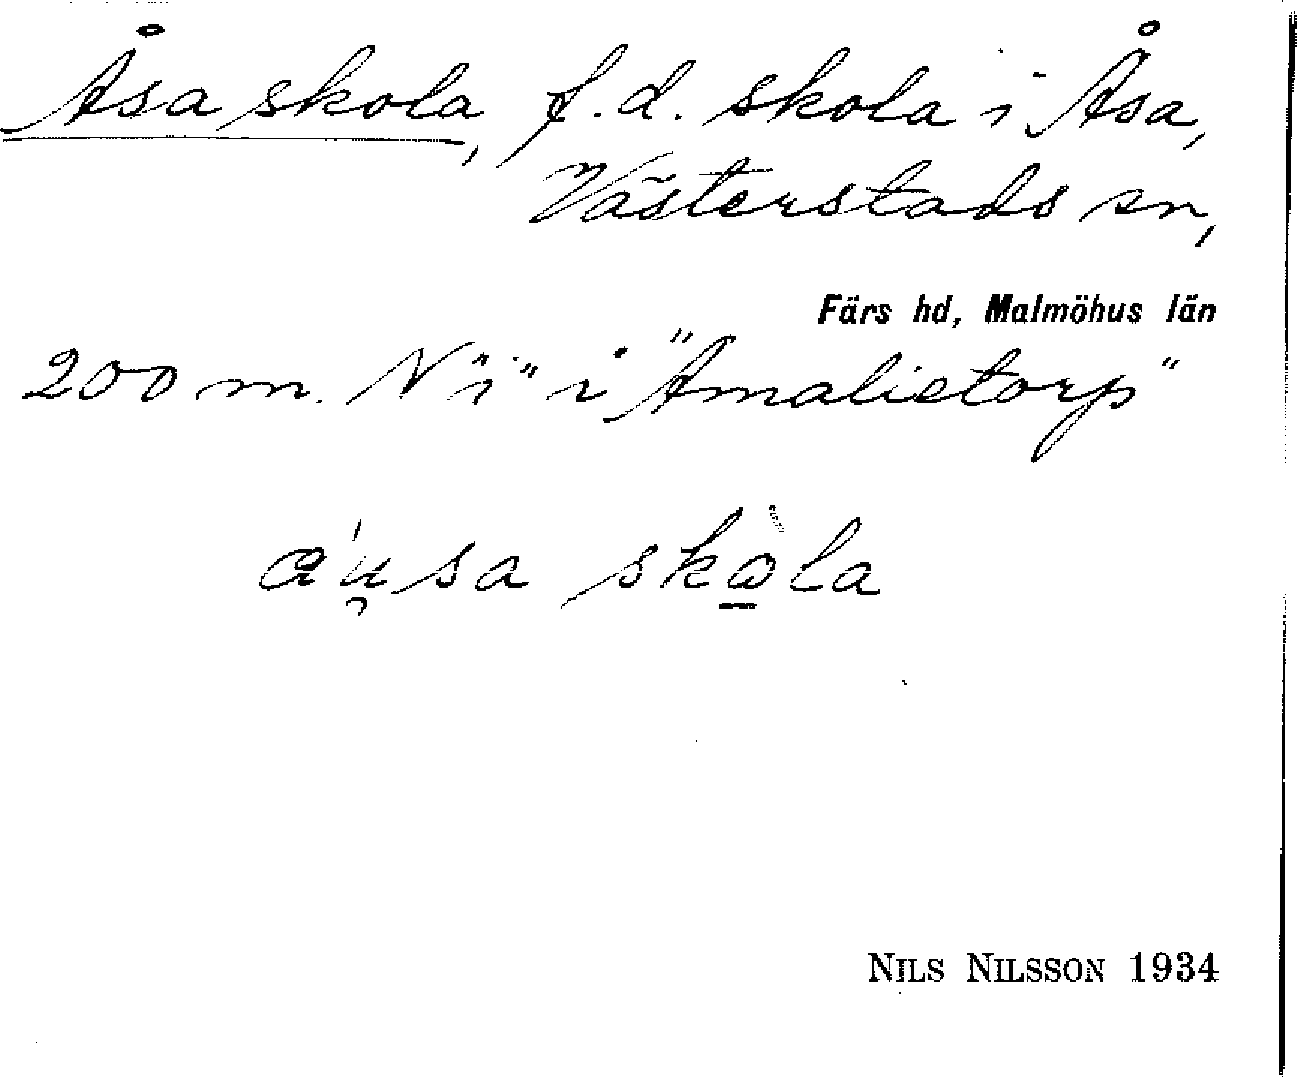 Åsa skola, f.d. skola i Åsa,
Västerstads sn,
Färs hd, Malmöhus län
200 m. N "i" i "Amalietorp"
áu̯sa skὼ̱la
NILS NILSSON 1934